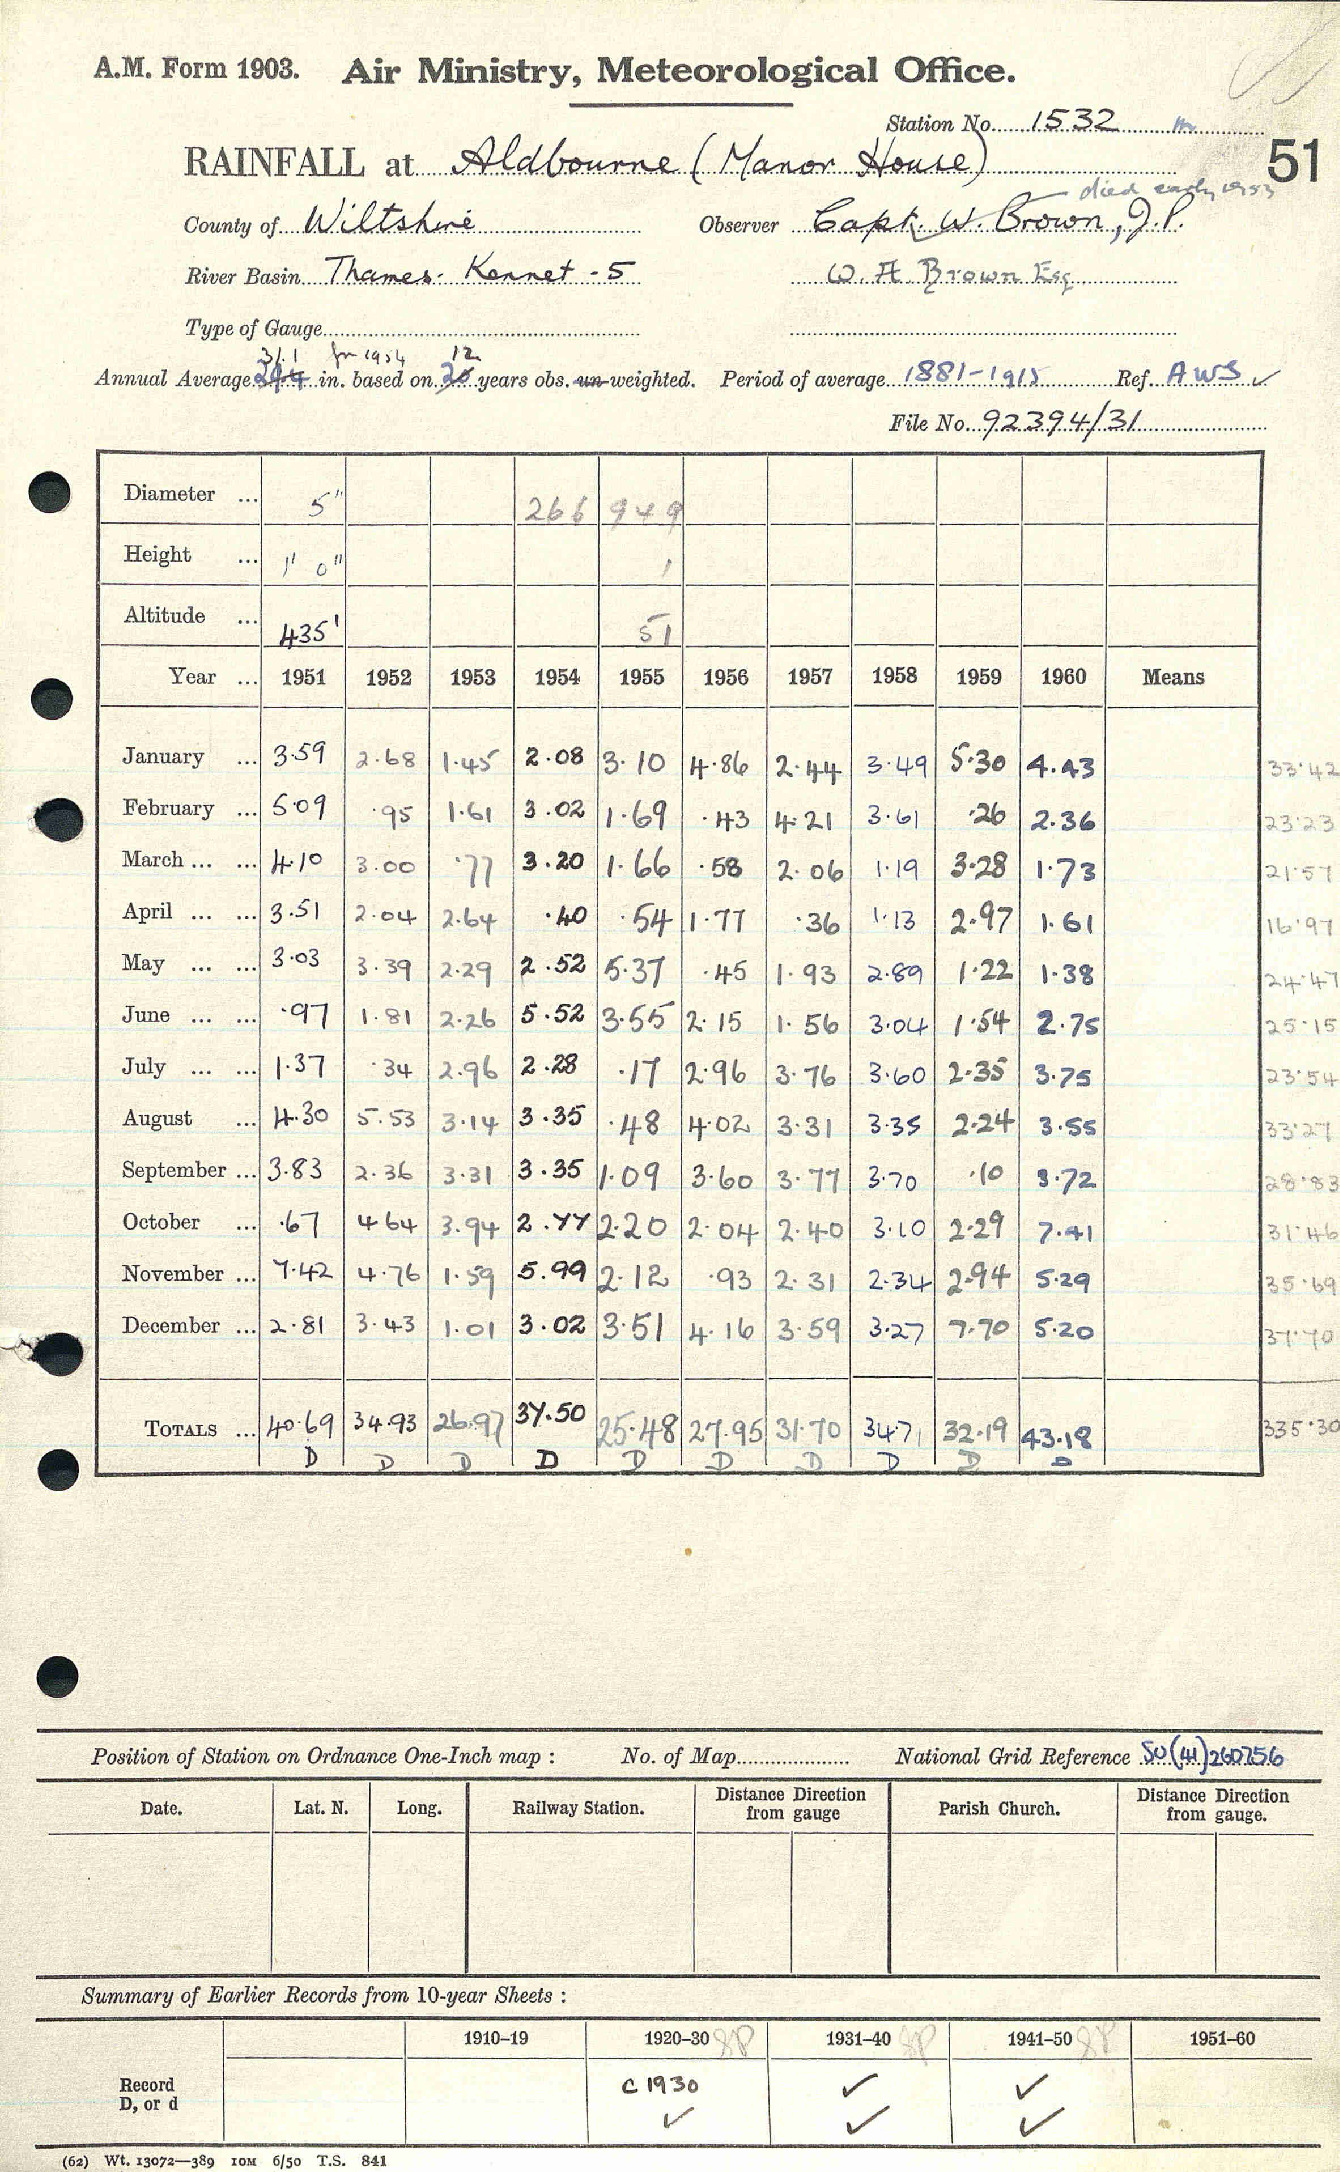 A.M. Form 1903. Air Ministry, Meteorological Office.
Station No. 1532 m
RAINFALL at Aldbourne (Manor House) 51
died early 1953
County of Wiltshire Observer Capt. W. Brown, J.P.
River Basin Thames- Kennet - 5 W. A. Brown Esq
Type of Gauge
31.1 for 1954 12
Annual Average 29.4 in. based on 20 years obs. un-weighted. Period of average 1881-1915 Ref. AWS ✓
File No. 92394/31
Diameter ... 5" 266 949
Height ... 1' 0" 1
Altitude ... 435' 51
Year ... 1951 1952 1953 1954 1955 1956 1957 1958 1959 1960 Means
January ... 3.59 2.68 1.45 2.08 3.10 4.86 2.44 3.49 5.30 4.43 33.42
February ... 5.09 .95 1.61 3.02 1.69 .43 4.21 3.61 .26 2.36 23.23
March ... ... 4.10 3.00 .77 3.20 1.66 .58 2.06 1.19 3.28 1.73 21.57
April ... ... 3.51 2.04 2.64 .40 .54 1.77 .36 1.13 2.97 1.61 16.97
May ... ... 3.03 3.39 2.29 2.52 5.37 .45 1.93 2.89 1.22 1.38 24.47
June ... ... .97 1.81 2.26 5.52 3.55 2.15 1.56 3.04 1.54 2.75 25.15
July ... ... 1.37 .34 2.96 2.28 .17 2.96 3.76 3.60 2.35 3.75 23.54
August ... 4.30 5.53 3.14 3.35 .48 4.02 3.31 3.35 2.24 3.55 33.27
September ... 3.83 2.36 3.31 3.35 1.09 3.60 3.77 3.70 .10 3.72 28.83
October ... .67 4.64 3.94 2.77 2.20 2.04 2.40 3.10 2.29 7.41 31.46
November ... 7.42 4.76 1.59 5.99 2.12 .93 2.31 2.34 2.94 5.29 35.69
December ... 2.81 3.43 1.01 3.02 3.51 4.16 3.59 3.27 7.70 5.20 37.70
TOTALS ... 40.69 34.93 26.97 37.50 25.48 27.95 31.70 34.71 32.19 43.18 335.30
D D D D D D D D D D
Position of Station on Ordnance One-Inch map : No. of Map National Grid Reference SU(41)260756
Date. Lat. N. Long. Railway Station. Distance from gauge Direction Parish Church. Distance from gauge. Direction
Summary of Earlier Records from 10-year Sheets :
1910–19 1920–30 SP 1931–40 SP 1941–50 SP 1951–60
Record c 1930 ✓ ✓
D, or d ✓ ✓ ✓
(62) Wt. 13072—389 10M 6/50 T.S. 841